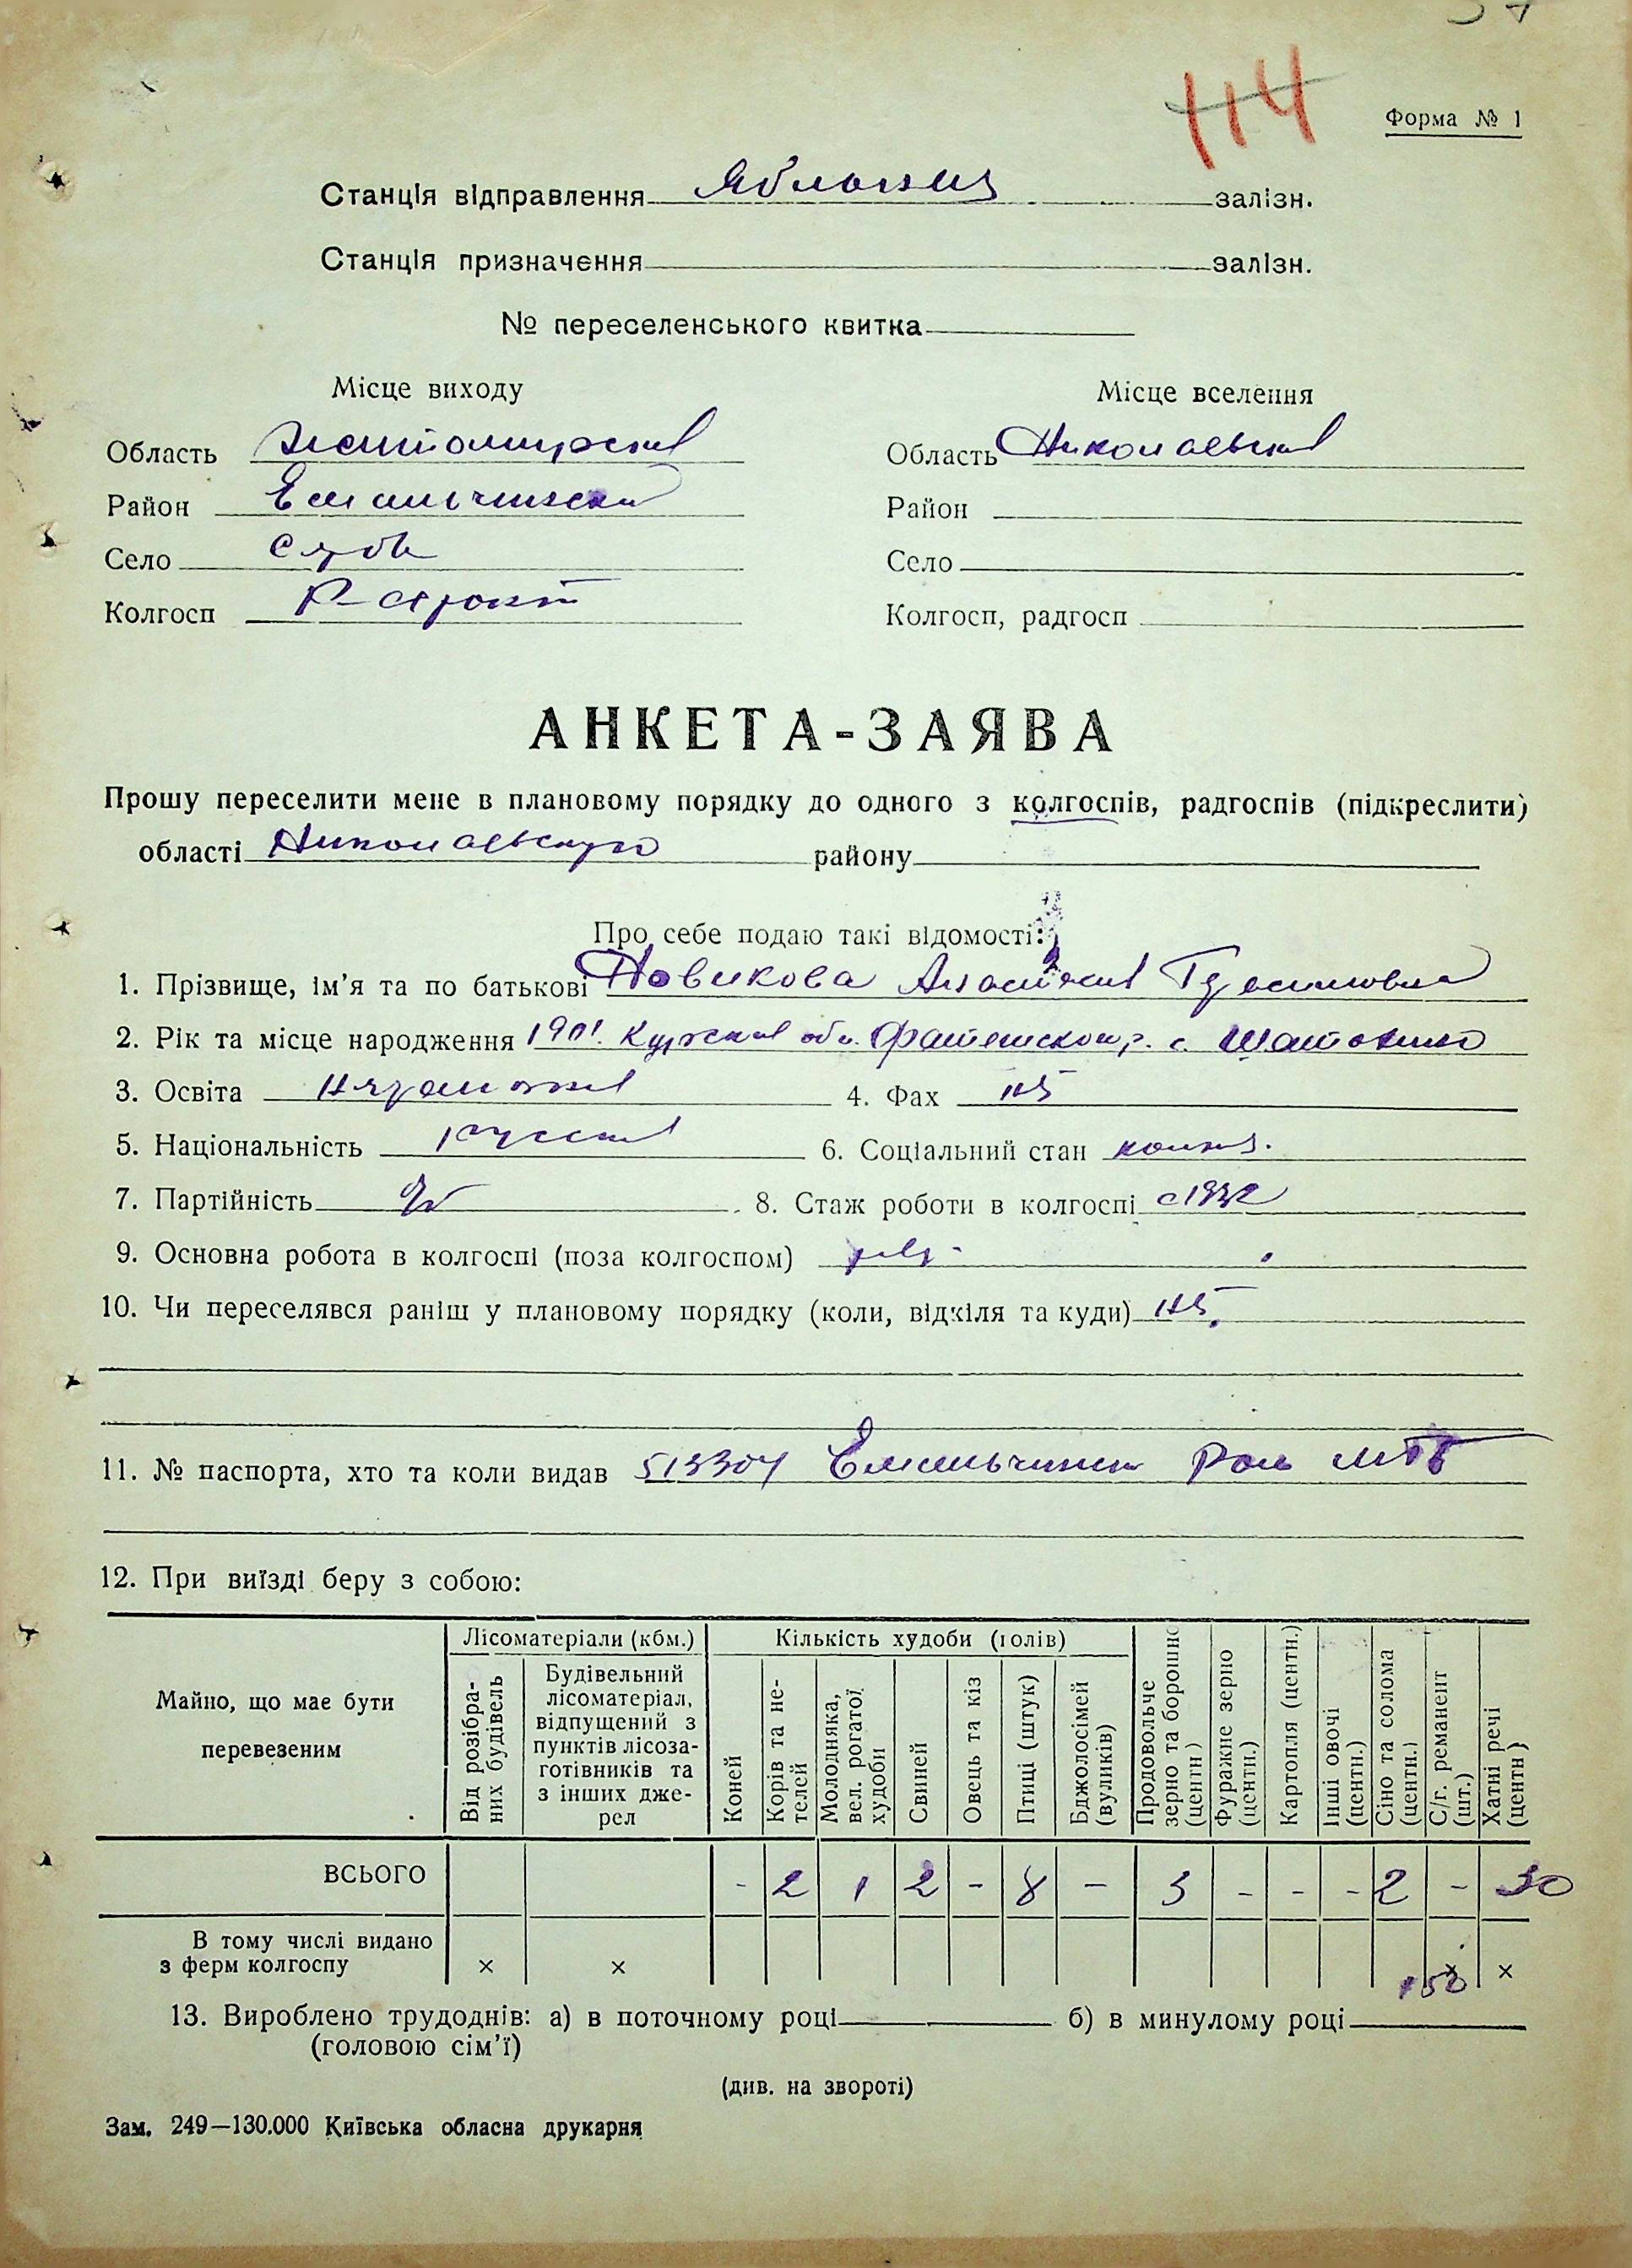 114
Форма № 1
Станція відправлення Яблонец залізн.
Станція призначення залізн.
№ переселенського квитка
Місце виходу Місце вселення
Область Житомирская Область Николаевская
Район Емильчинский Район
Село Село
Колгосп Колгосп, радгосп
АНКЕТА-ЗАЯВА
Прошу переселити мене в плановому порядку до одного з колгоспів, радгоспів (підкреслити)
області Николаевскую району
Про себе подаю такі відомості:
1. Прізвище, ім’я та по батькові Новикова Анастасия
2. Рік та місце народження 1901. Курская обл. Фатежского р. с.
3. Освіта неграмотная 4. Фах нет
5. Національність русская 6. Соціальний стан колхоз.
7. Партійність б/п 8. Стаж роботи в колгоспі с 1932
9. Основна робота в колгоспі (поза колгоспом)
10. Чи переселявся раніш у плановому порядку (коли, відкіля та куди) нет.
11. № паспорта, хто та коли видав 513304 Емильчинск
12. При виїзді беру з собою:
Майно, що має бути перевезеним
Лісоматеріали (кбм.) Кількість худоби (голів)
Від розібраних будівель
Будівельний лісоматеріал, відпущений з пунктів лісозаготівників та з інших джерел
Коней
Корів та нетелей
Молодняка, вел. рогатої худоби
Свиней
Овець та кіз
Птиці (штук)
Бджолосімей (вуликів)
Продовольче зерно та борошно (центн.)
Фуражне зерно (центн.)
Картопля (центн.)
Інші овочі (центн.)
Сіно та солома (центн.)
С/г. реманент (шт.)
Хатні речі (центн.)
ВСЬОГО - 2 1 2 - 8 - 3 - - - 2 - 30
В тому числі видано
з ферм колгоспу × × × ×
13. Вироблено трудоднів: а) в поточному році б) в минулому році 152
(головою сім’ї)
(див. на звороті)
Зам. 249—130.000 Київська обласна друкарня